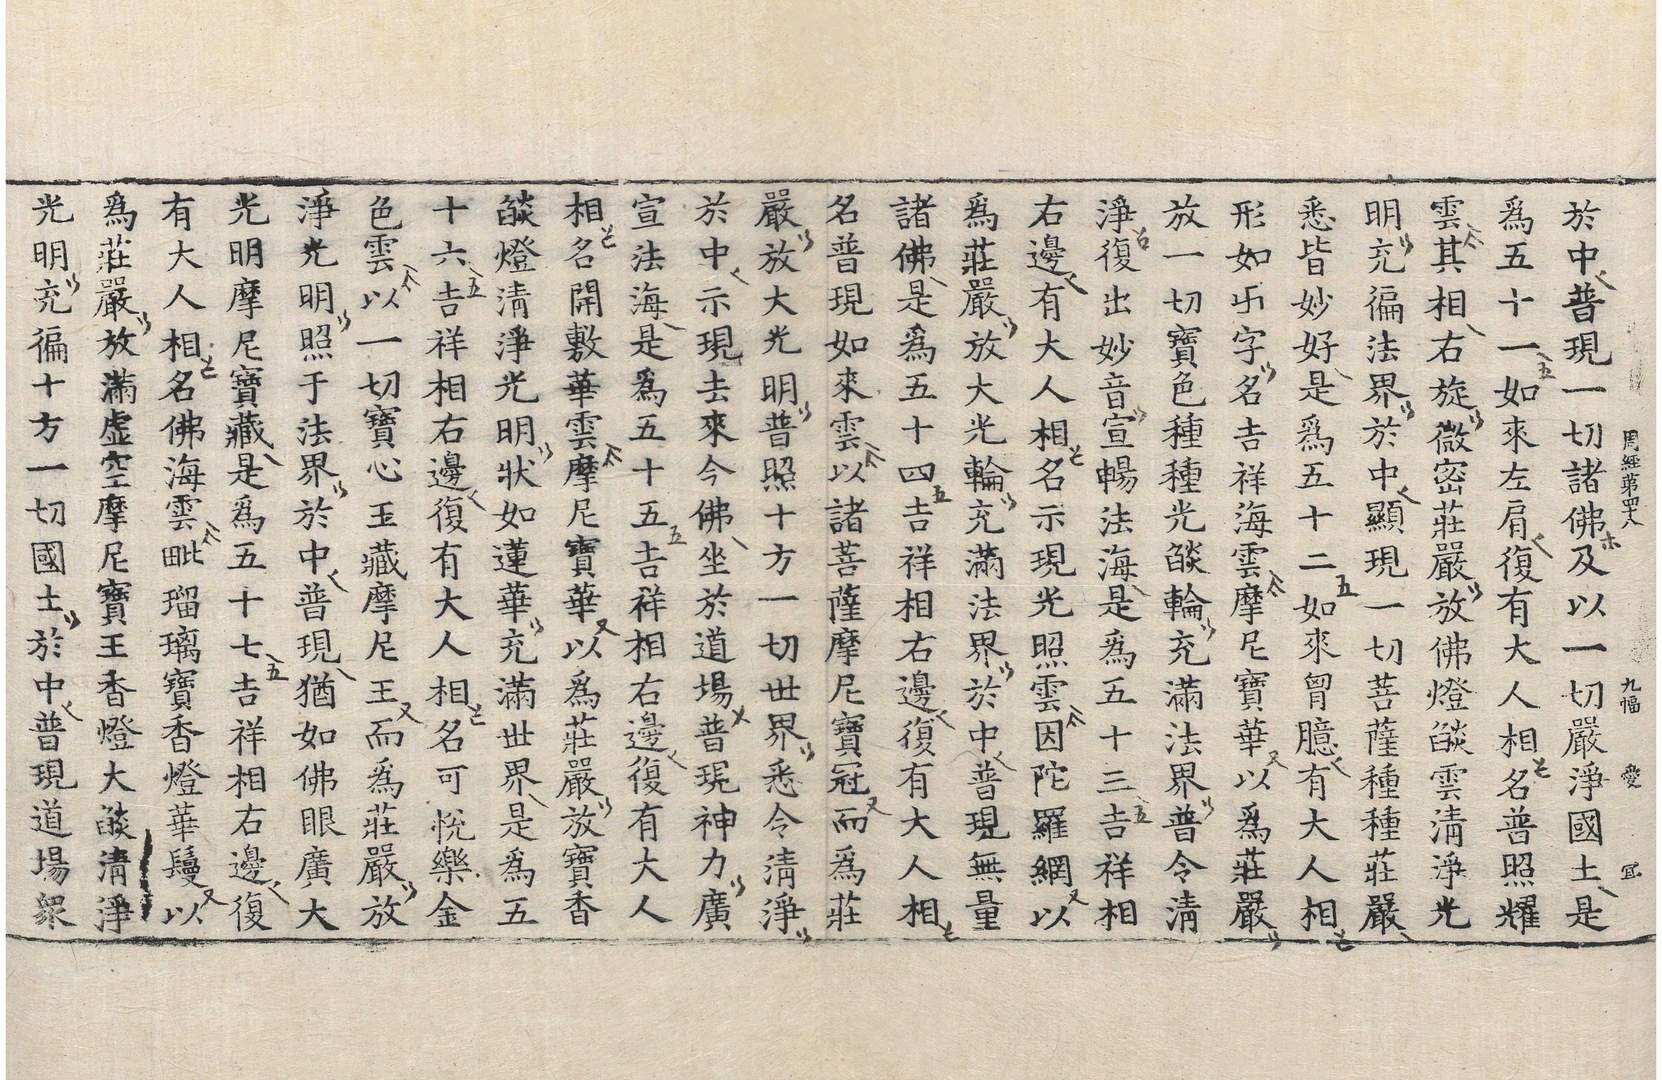 周經第四十八　九幅　愛　冝
於中普現一切諸佛及以一切嚴淨國土是
爲五十一如來左肩復有大人相名普照耀
雲其相右旋微密莊嚴放佛燈燄雲清淨光
明充徧法界於中顯現一切菩薩種種莊嚴
悉皆妙好是爲五十二如來胷臆有大人相
形如卐字名吉祥海雲摩尼寶華以爲莊嚴
放一切寶色種種光燄輪充滿法界普令清
淨復出妙音宣暢法海是爲五十三吉祥相
右邊有大人相名示現光照雲因陀羅網以
爲莊嚴放大光輪充滿法界於中普現無量
諸佛是爲五十四吉祥相右邊復有大人相
名普現如來雲以諸菩薩摩尼寶冠而爲莊
嚴放大光明普照十方一切世界悉令清淨
於中示現去來今佛坐於道場普現神力廣
宣法海是爲五十五吉祥相右邊復有大人
相名開敷華雲摩尼寶華以爲莊嚴放寶香
燄燈清淨光明狀如蓮華充滿世界是爲五
十六吉祥相右邊復有大人相名可悅樂金
色雲以一切寶心王藏摩尼王而爲莊嚴放
淨光明照于法界於中普現猶如佛眼廣大
光明摩尼寶藏是爲五十七吉祥相右邊復
有大人相名佛海雲毗瑠璃寶香燈華鬘以
爲莊嚴放滿虛空摩尼寶王香燈大燄清淨
光明充徧十方一切國土於中普現道場衆